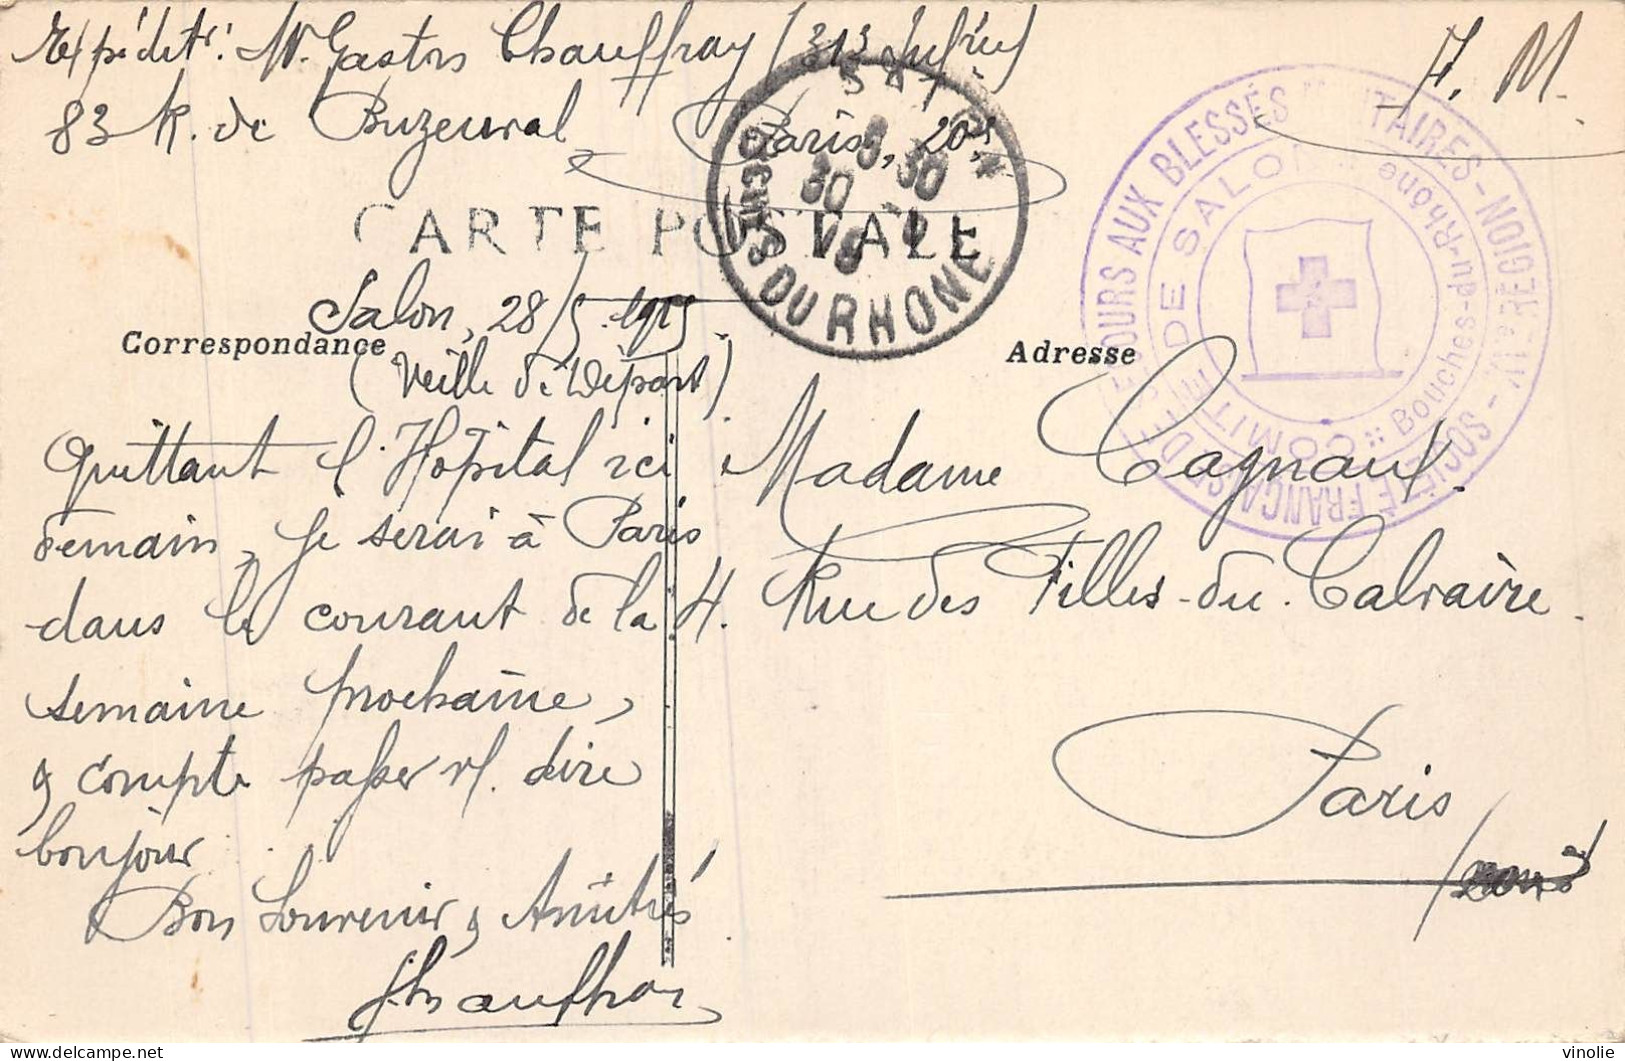 Expédit.: M. Gaston Chauffray (313 Infrie)
F. M.
83 R. de Buzenval Paris, 20e.
CARTE POSTALE
Salon, 28/5 1915
Correspondance
(Veille de Départ)
Quittant l'Hôpital ici
demain, je serai à Paris
dans le courant de la
semaine prochaine,
& compte passer vs. dire
bonjour
Bon Souvenir & Amitiés
GChauffray
Adresse
Madame Cagnaux.
4. Rue des Filles-du-Calvaire.
Paris
BOUCHES DU RHONE
SOCIÉTÉ FRANÇAISE DE SECOURS AUX BLESSÉS MILITAIRES - XVe RÉGION
COMITÉ DE SALON
Bouches-du-Rhône
vinolie